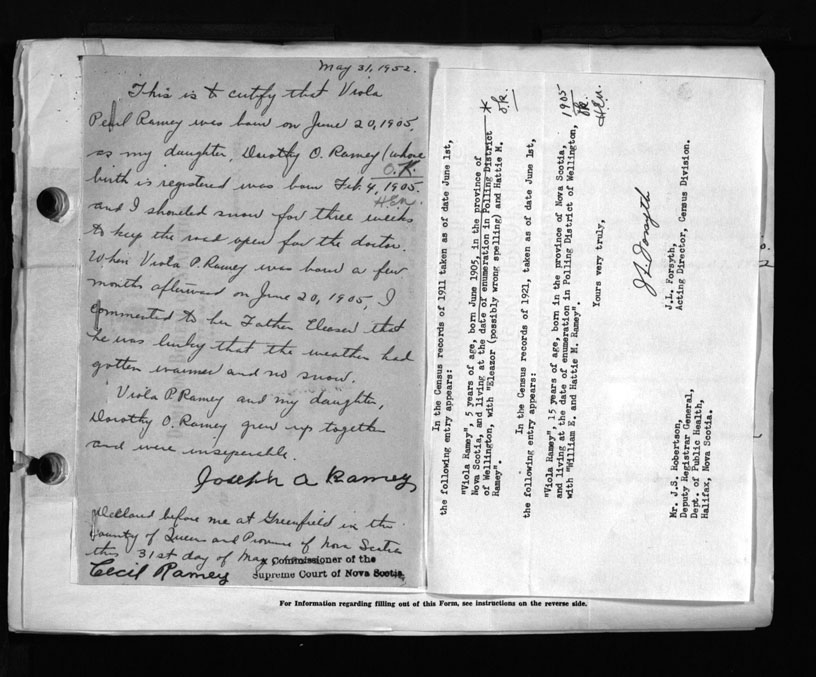 May 31, 1952.
This is to certify that Viola
Pearl Ramey was born on June 20, 1905,
as my daughter, Dorothy O. Ramey (whose
O.K.
birth is registered was born Feb. 4, 1905.
H.E.M.
and I shoveled snow for three weeks
to keep the road open for the doctor.
When Viola P. Ramey was born a few
months afterward on June 20, 1905, I
commented to her Father Eleaser that
he was lucky that the weather had
gotten warmer and no snow.
Viola P. Ramey and my daughter,
Dorothy O. Ramey grew up together
and were inseperable.
Joseph A Ramey
Declared before me at Greenfield in the
County of Queens and Province of Nova Scotia
this 31st day of May
Commissioner of the
Cecil Ramey
Supreme Court of Nova Scotia
In the Census records of 1911 taken as of date June 1st,
the following entry appears:
"Viola Ramey", 5 years of age, born June 1905, in the province of
Nova Scotia, and living at the date of enumeration in Polling District
of Wellington, with "Eleazor (possibly wrong spelling) and Hattie M.
Ramey".
* O.K.
In the Census records of 1921, taken as of date June 1st,
the following entry appears:
"Viola Ramey", 15 years of age, born in the province of Nova Scotia,
and living at the date of enumeration in Polling District of Wellington,
with "William E. and Hattie M. Ramey".
1905
O.K.
H.E.M.
Yours very truly,
J L Forsyth
J.L. Forsyth,
Acting Director, Census Division.
Mr. J.S. Robertson,
Deputy Registrar General,
Dept. of Public Health,
Halifax, Nova Scotia.
For Information regarding filling out of this Form, see instructions on the reverse side.